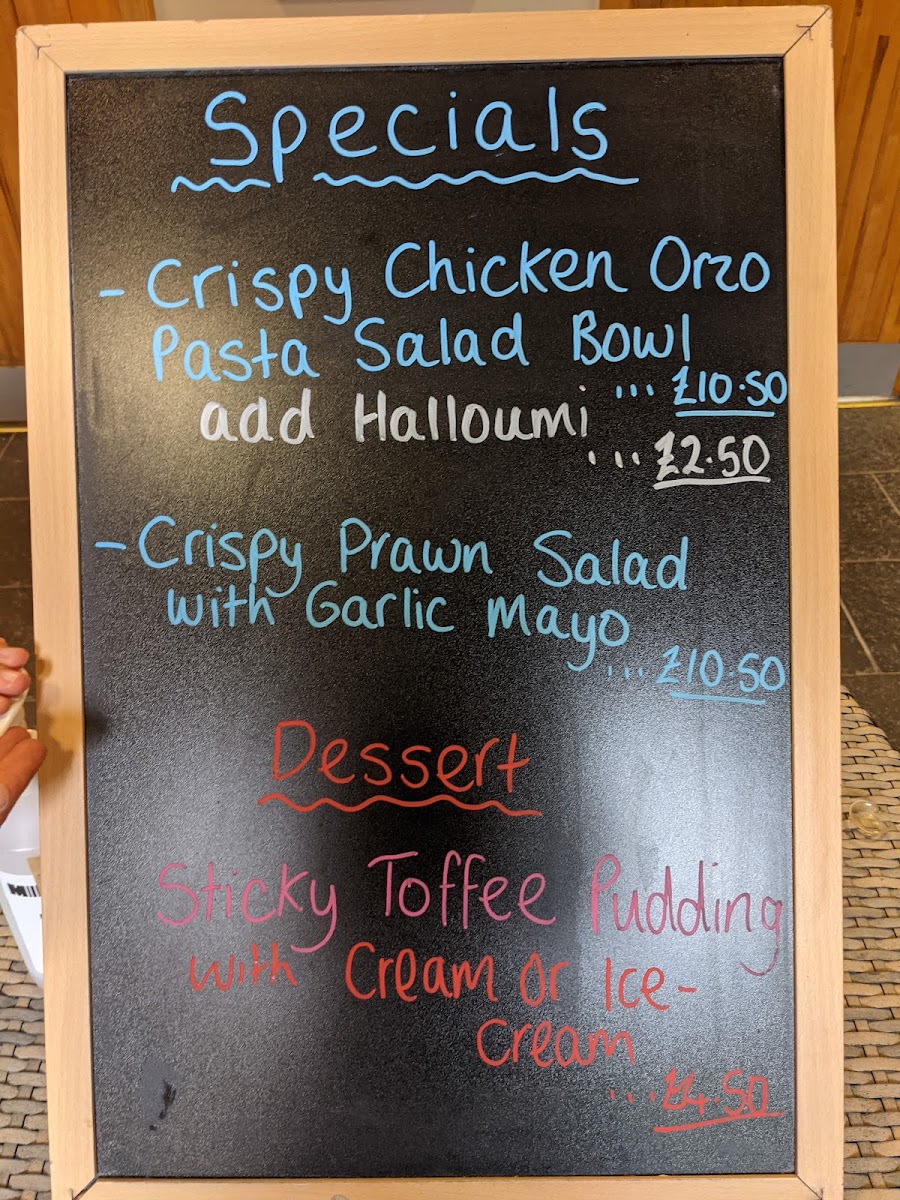 Specials
- Crispy Chicken Orzo
Pasta Salad Bowl
... £10.50
add Halloumi
... £2.50
- Crispy Prawn Salad
with Garlic Mayo
... £10.50
Dessert
Sticky Toffee Pudding
with Cream or Ice-
Cream
... £4.50